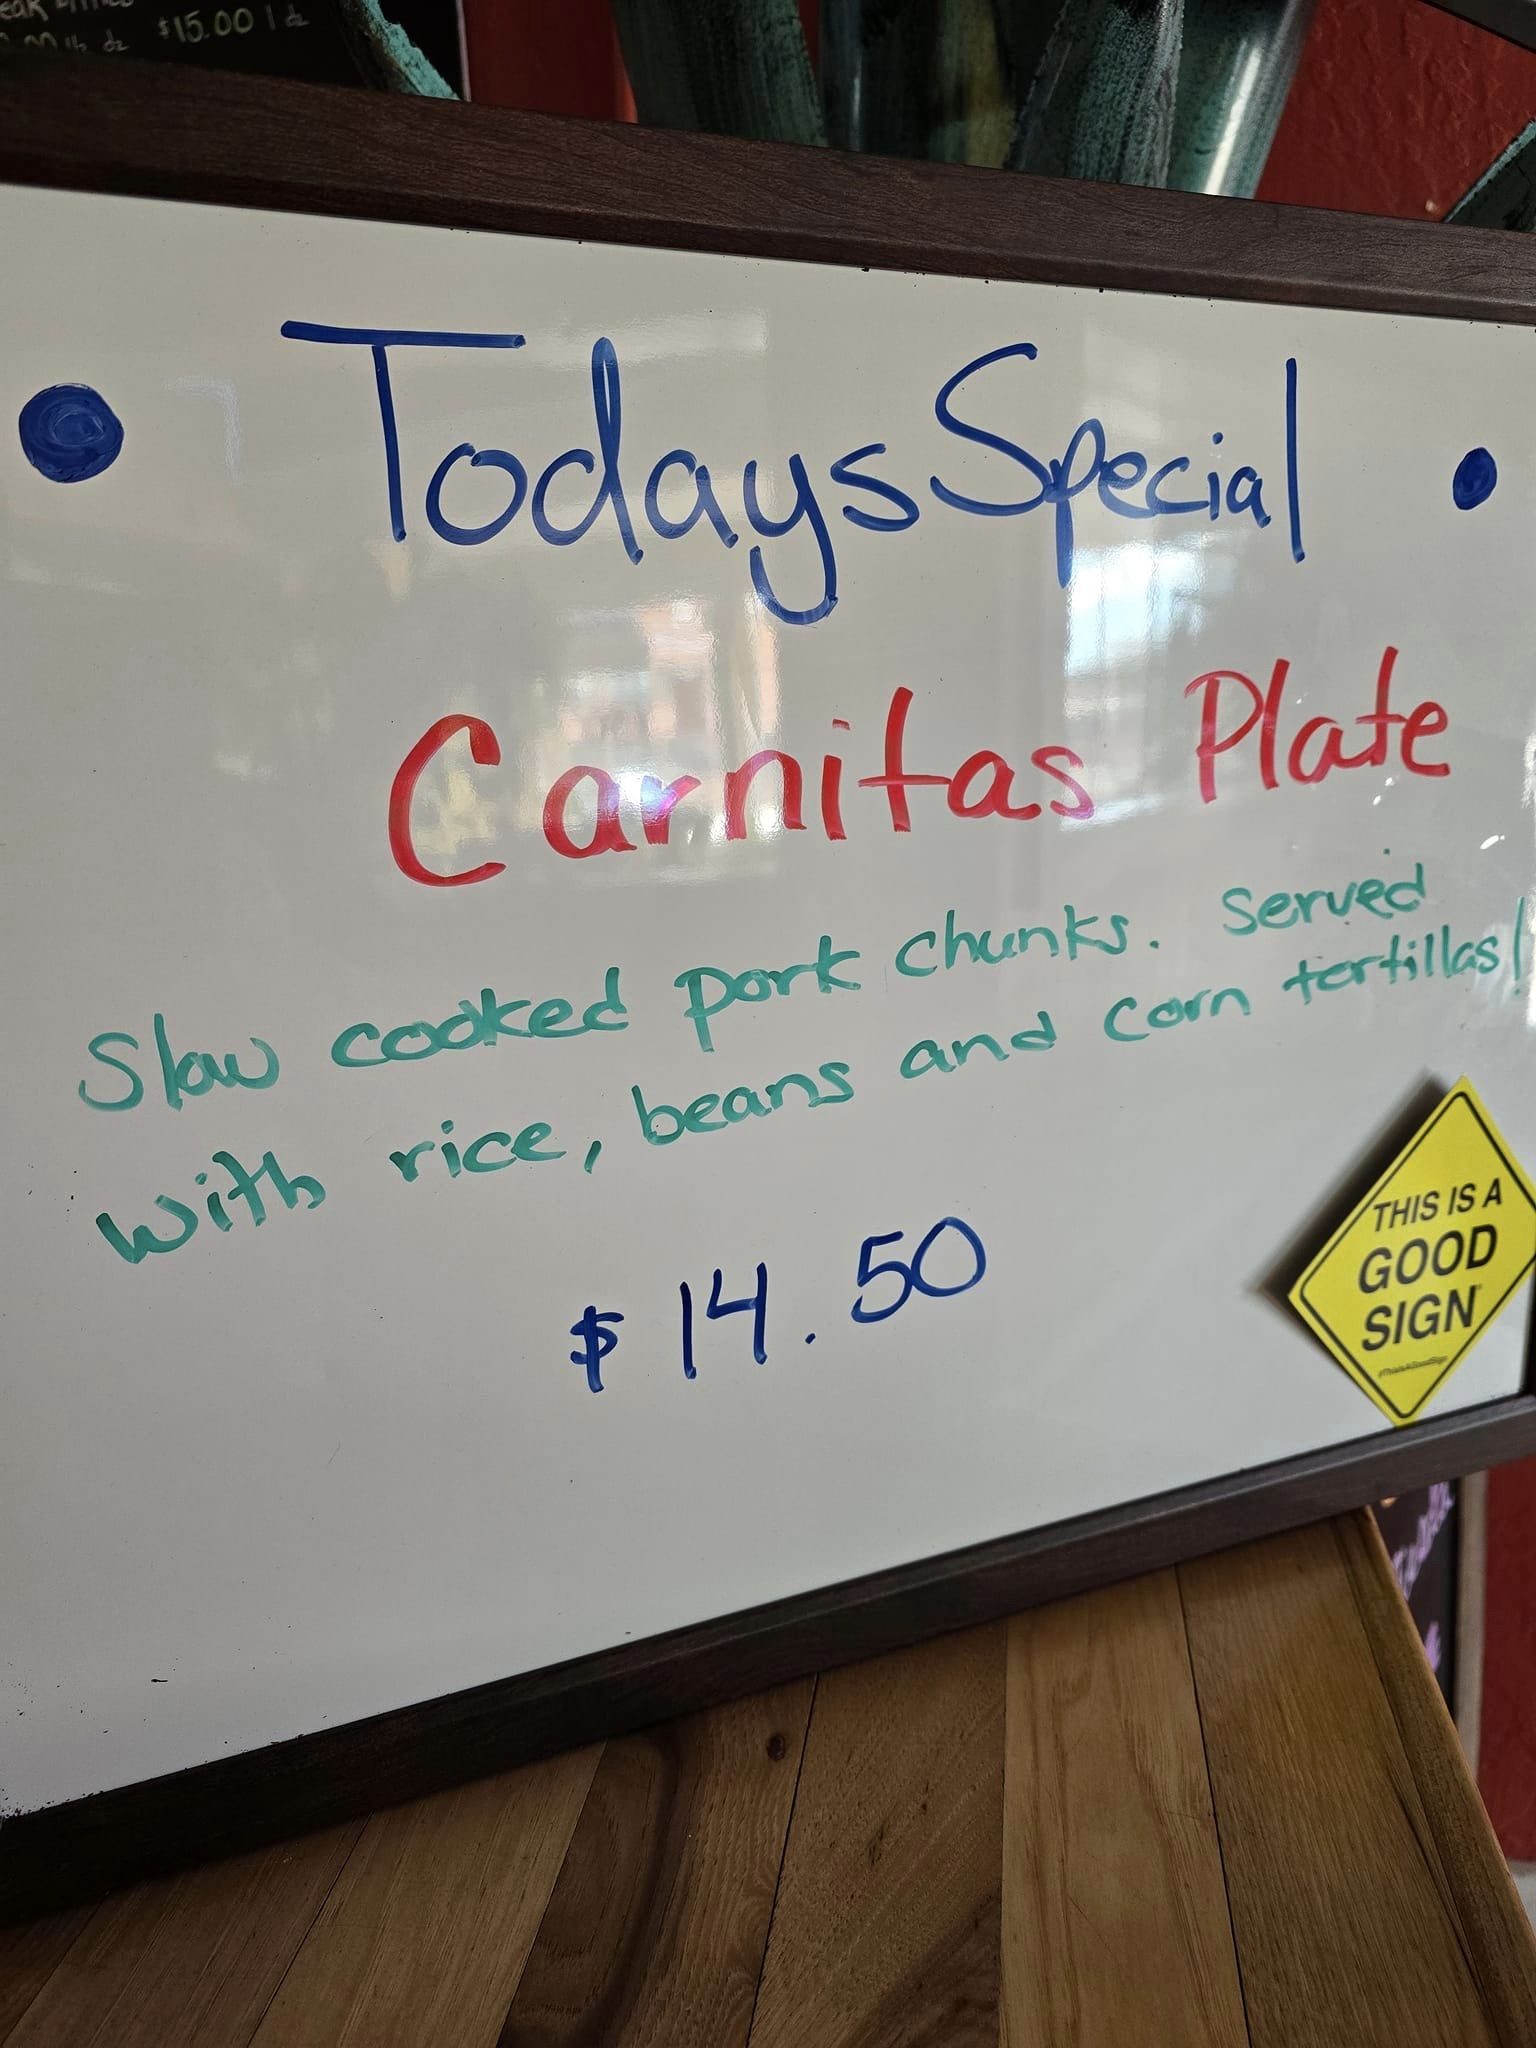 $15.00 1 dz
Todays Special
Carnitas Plate
Slow cooked pork chunks. Served
with rice, beans and corn tortillas!
$14.50
THIS IS A
GOOD
SIGN